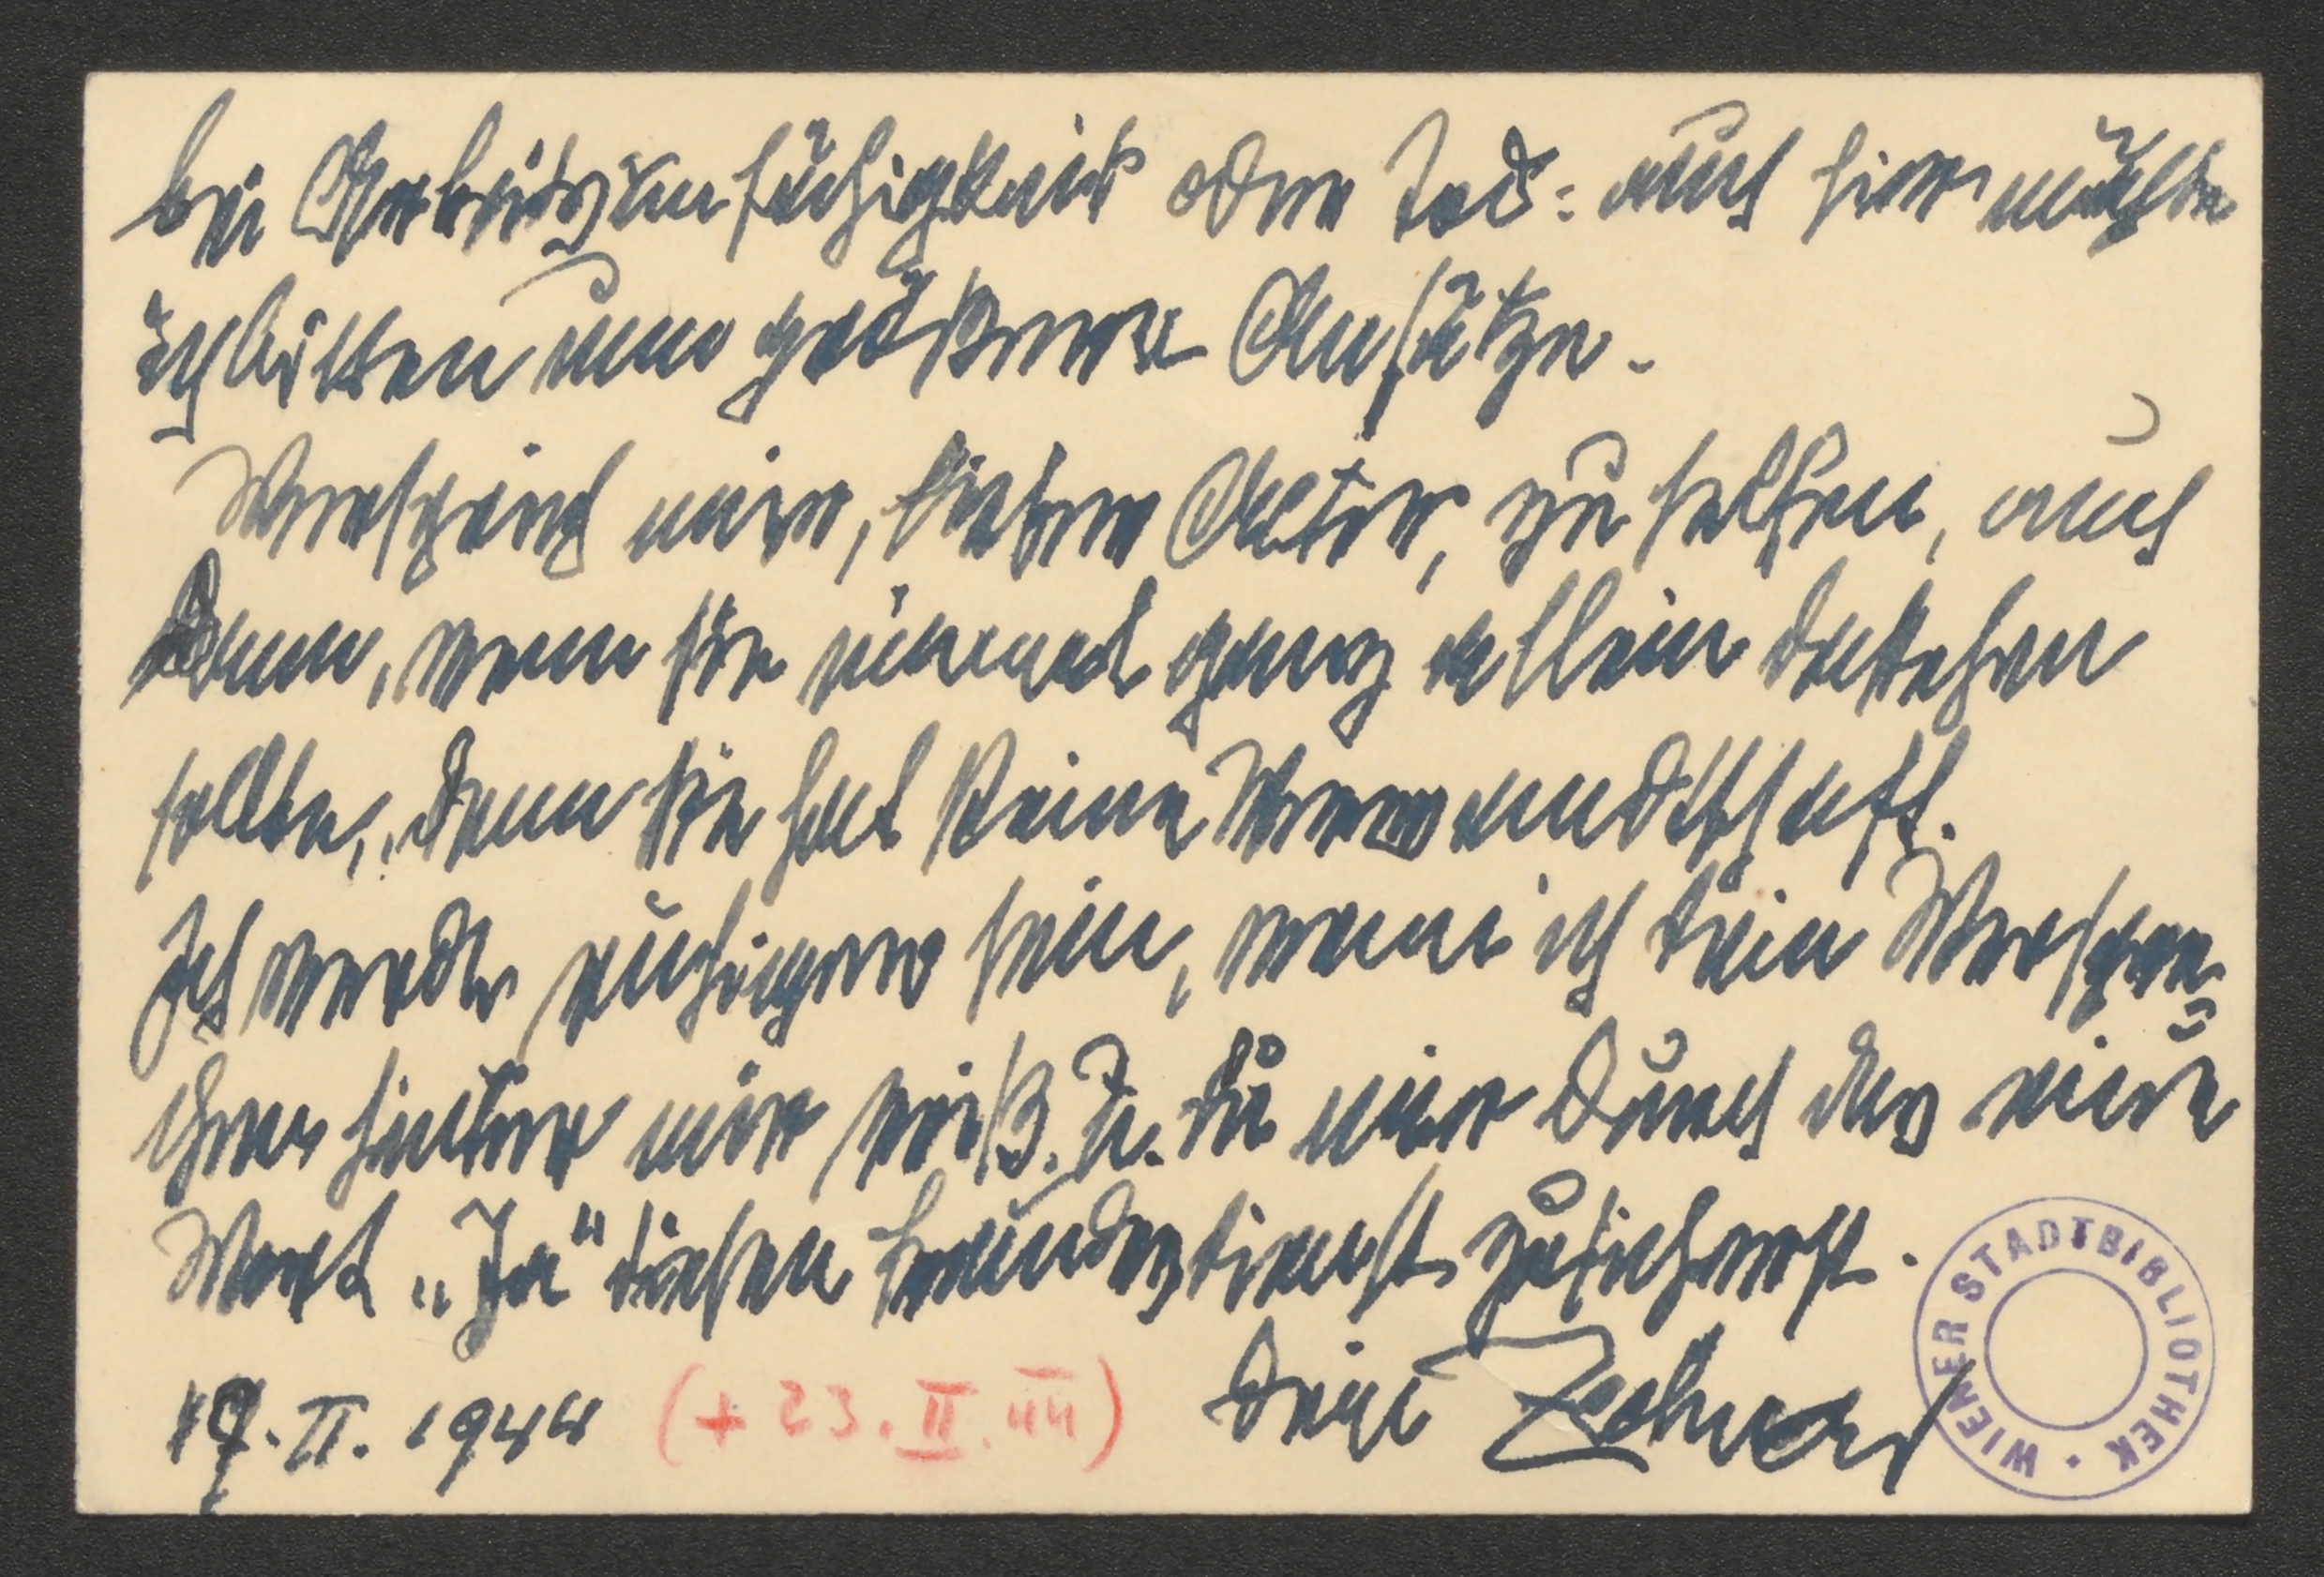 bei Arbeitsunfähigkeit oder Tod: auch hier möchte
ich bitten um größere Ansätze.
Versprich mir, lieber Alter, zu helfen, auch
dann, wenn sie einmal ganz allein dastehen
sollte, denn sie hat keine Verwandtschaft.
Ich werde ruhiger sein, wenn ich dein Verspre=
chen hinter mir weiß. U. du mir durch das eine
Wort „Ja" diesen Freundesdienst zusicherst.
Dein Zohner
17. II. 1944 (+ 23. II. 44)
WIENER STADTBIBLIOTHEK